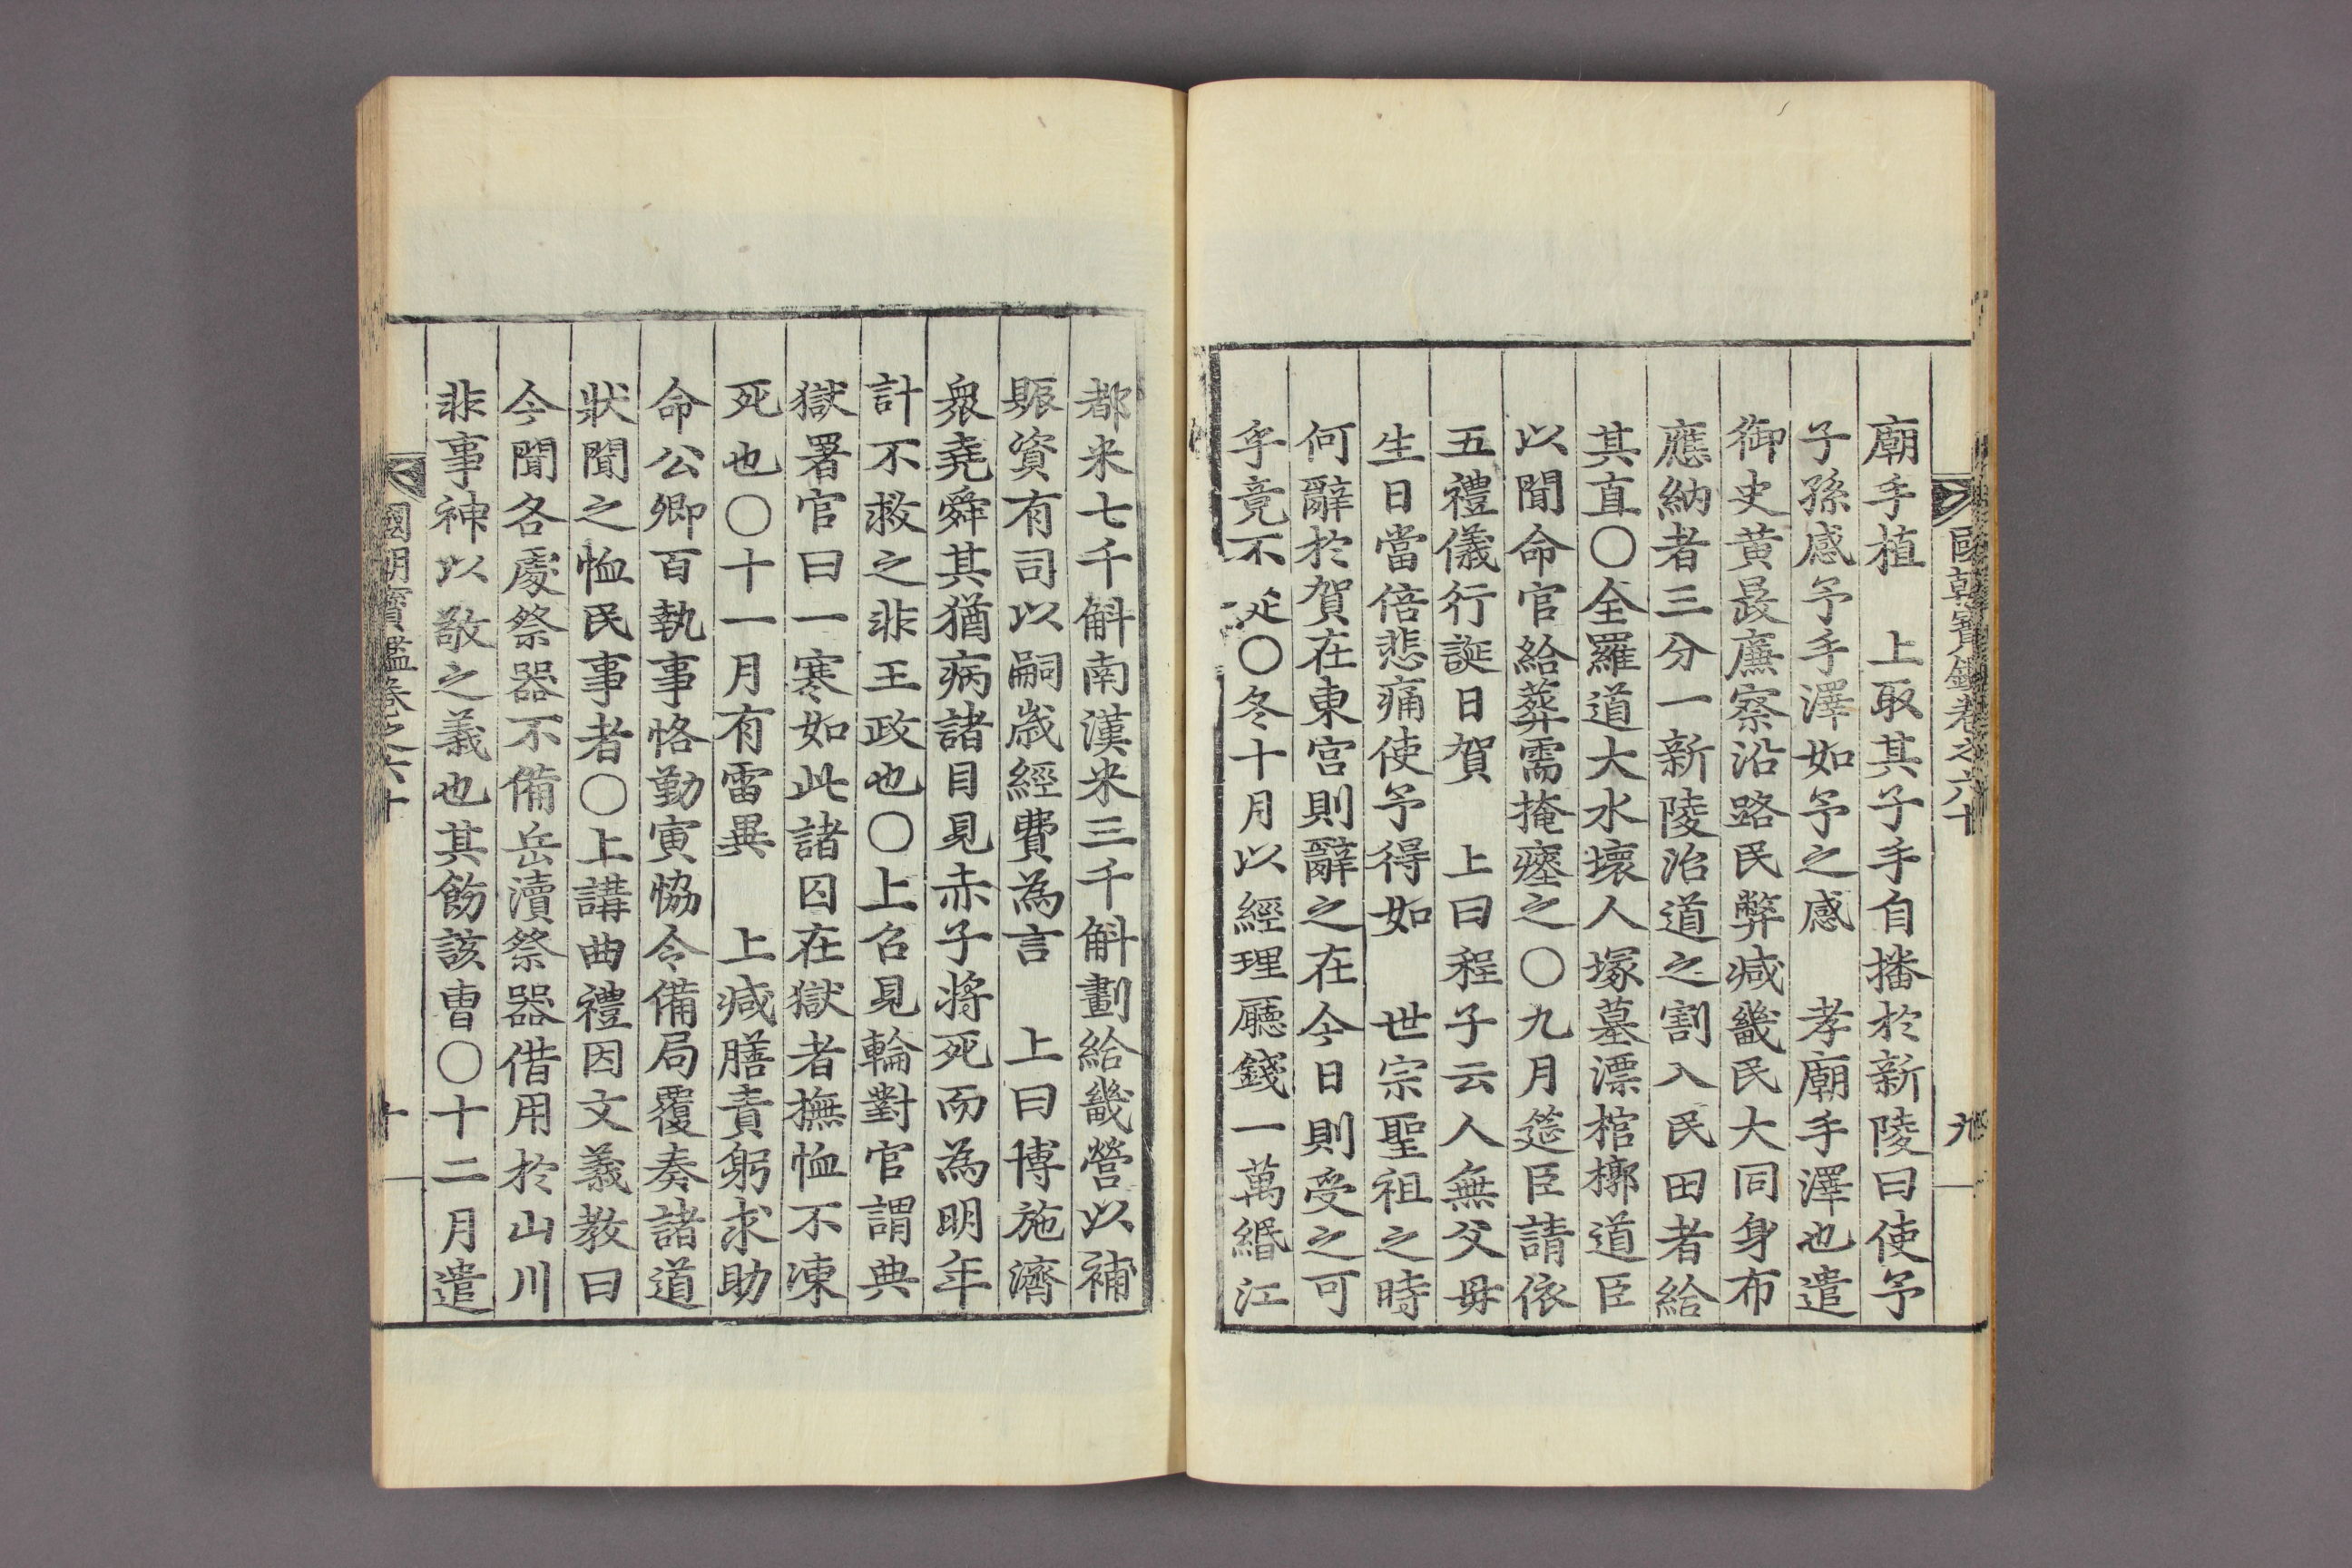 國朝寶鑑卷之六十 九
廟手植 上取其子手自播於新陵曰使予
子孫感予手澤如予之感 孝廟手澤也遣
御史黄晸廉察沿路民弊减畿民大同身布
應納者三分一新陵治道之割入民田者給
其直○全羅道大水壊人塚墓漂棺槨道臣
以聞命官給葬需掩瘞之○九月筵臣請依
五禮儀行誕日賀 上曰程子云人無父母
生日當倍悲痛使予得如 世宗聖祖之時
何辭於賀在東宮則辭之在今日則受之可
乎竟不 ○冬十月以經理廳錢一萬緡江
都米七千斛南漢米三千斛劃給畿營以補
賑資有司以嗣歲經費為言 上曰博施濟
衆堯舜其猶病諸目見赤子將死而為明年
計不救之非王政也○上召見輪對官謂典
獄署官曰一寒如此諸囚在獄者撫恤不凍
死也○十一月有雷異 上减膳責躬求助
命公卿百執事恪勤寅恊令備局覆奏諸道
狀聞之恤民事者○上講曲禮因文義教曰
今聞各處祭器不備岳瀆祭器借用於山川
非事神以敬之義也其飭該曺○十二月遣
國朝寶鑑卷之六十 十